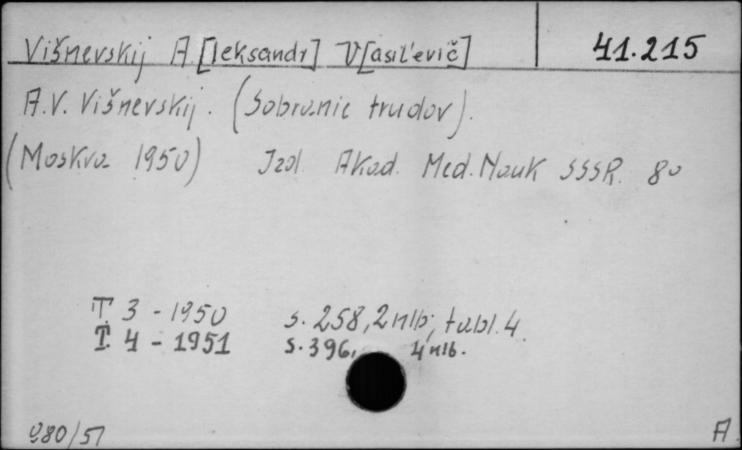 Višnevskij A[leksandr] V[asil'evič] 41.215
A.V. Višnevskij. (Sobranie trudov).
(Moskva 1950) Izd. Akad. Med. Nauk SSSR. 8o
T 3 - 1950 s. 258, 2 nlb, tabl. 4.
T. 4 - 1951 s. 396, 4 nlb.
980/51 A